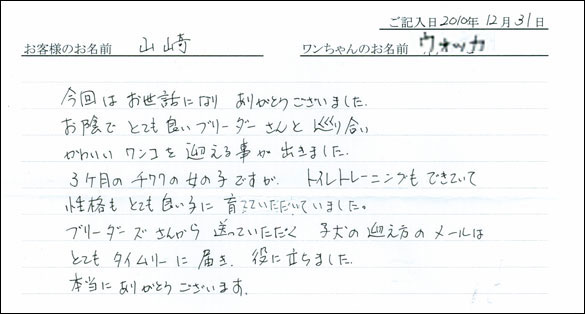 ご記入日2010年12月31日
お客様のお名前 山崎 ワンちゃんのお名前 ウォッカ
今回はお世話になり ありがとうございました.
お陰で とても良いブリーダーさんと 巡り合い
かわいい ワンコを 迎える事が 出きました.
3ヶ月の チワワの女の子ですが、トイレトレーニングもできていて
性格も とても良い子に 育てていただいていました。
ブリーダーズさんから 送っていただく 子犬の迎え方のメールは
とても タイムリーに 届き、役に立ちました.
本当に ありがとうございます.